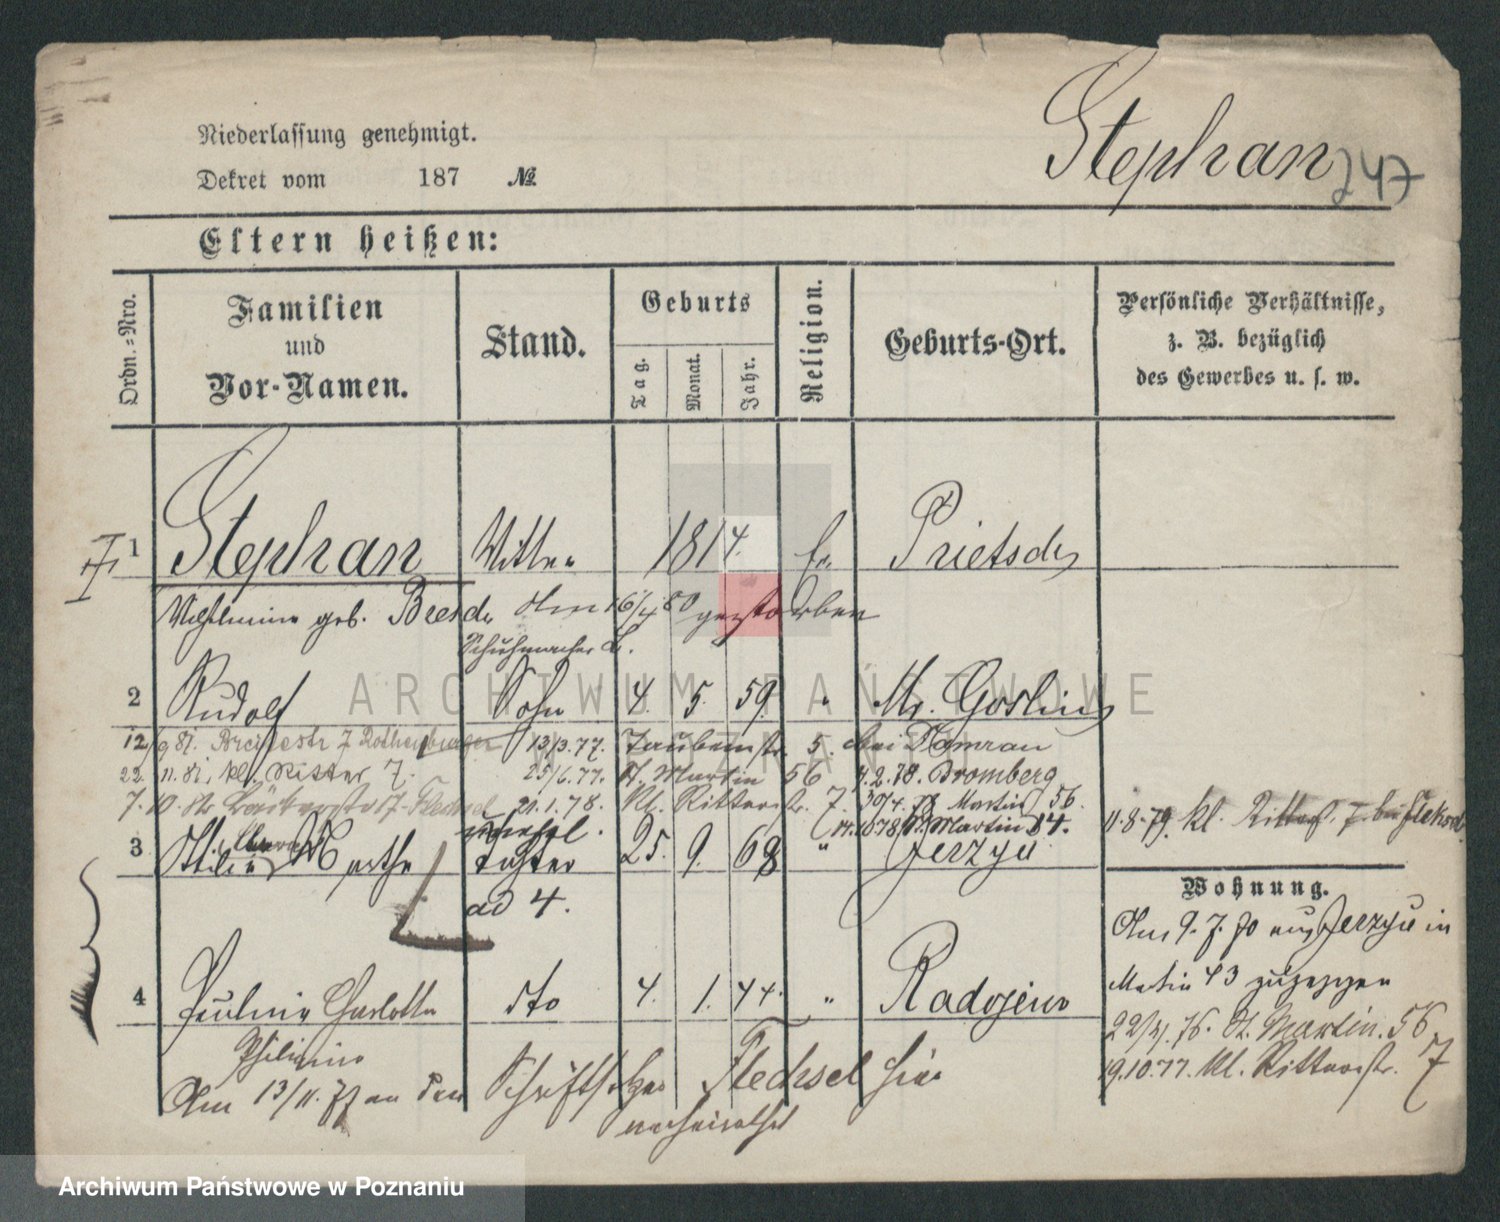 Niederlassung genehmigt.
Stephan 247
Dekret vom 187 №
Eltern heißen:
Ordn.-Nro.
Familien und Vor-Namen.
Stand.
Geburts
Tag.
Monat.
Jahr.
Religion.
Geburts-Ort.
Persönliche Verhältnisse,
z. B. bezüglich
des Gewerbes u. s. w.
1 Stephan Wittwe 1814. Ev. Prietsch
Wilhelmine geb. am 16/4 80 gestorben
Schuhmacher L.
2 Rudolf Sohn 4. 5. 59. " Mr. Goslin
12/9 81. Breitestr 7 13/3.77. Taubenstr. 5. bei
22. 11. 81. kl. Ritter 7. 25/6.77. St. Martin 56 4.2.78. Bromberg
20.1.78. kl. Ritterstr. 7. 30/4 78 Martin 56.
St. Martin 11.8.79. kl. Ritterstr. 7
3 Marthe Tochter 25. 9. 68 " Jerzyce
ad 4.
Wohnung.
Am 9.7. 70 aus Jerzyce in
Martin 43 zugezogen
4 Pauline Charlotte dto 4. 1. 44. " Radojewo
22/4. 76. St. Martin. 56.
19.10.77. kl. Ritterstr. 7
Am 13/11. 77 an den Schriftsetzer Flechsel hier
verheirathet
ARCHIWUM PAŃSTWOWE
W POZNANIU
Archiwum Państwowe w Poznaniu